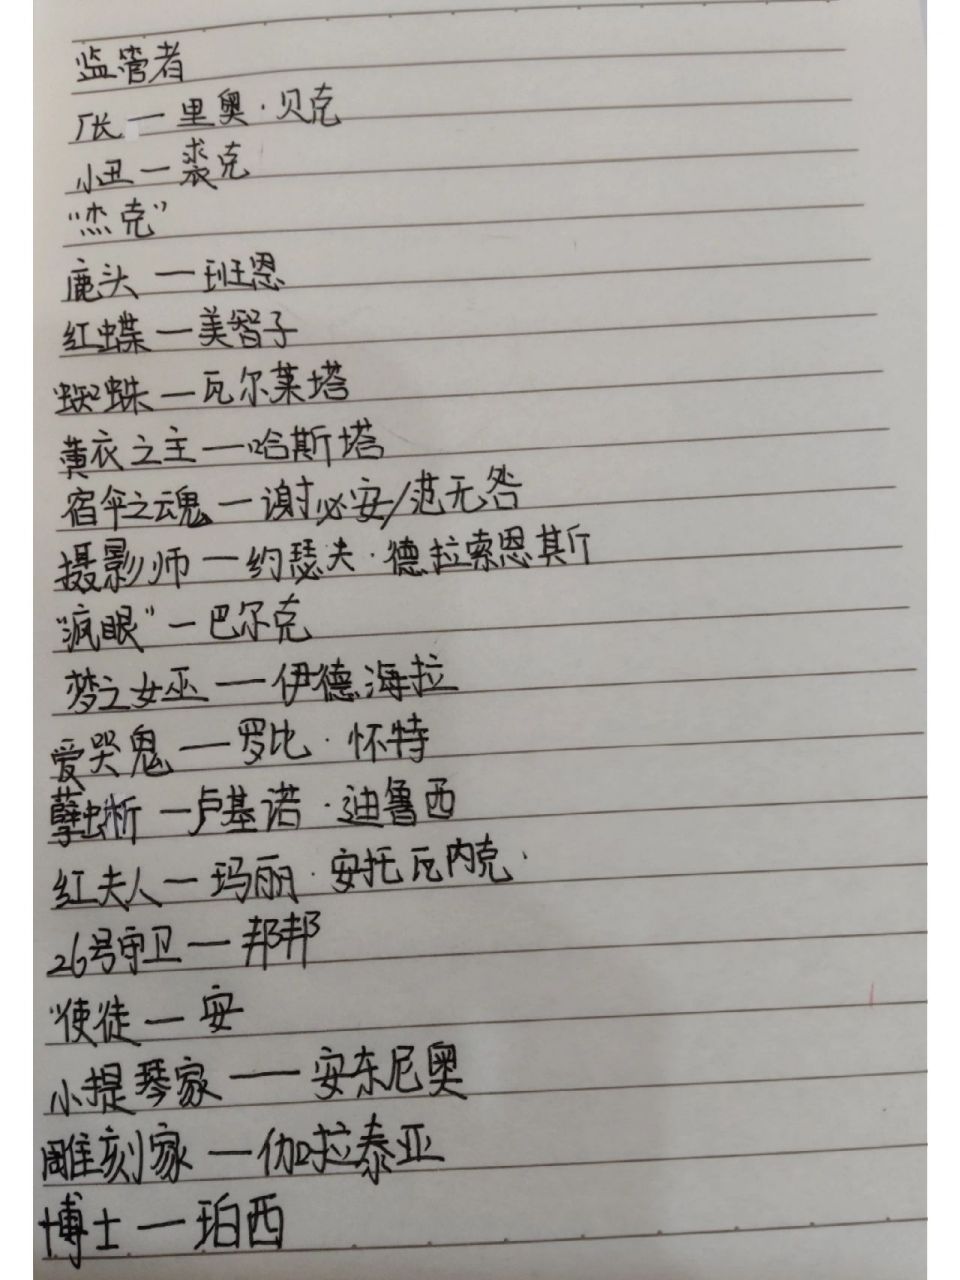 监管者
厂长一里奥·贝克
小丑一裘克
“杰克”
鹿头一班恩
红蝶一美智子
蜘蛛一瓦尔莱塔
黄衣之主一哈斯塔
宿伞之魂一谢必安/范无咎
摄影师一约瑟夫·德拉索恩斯
“疯眼”一巴尔克
梦之女巫一伊德海拉
爱哭鬼一罗比·怀特
孽蜥一卢基诺·迪鲁西
红夫人一玛丽·安托瓦内克·
26号守卫一邦邦
“使徒一安
小提琴家一安东尼奥
雕刻家一伽拉泰亚
博士一珀西